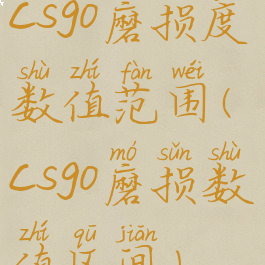 csgo磨损度
shù zhí fàn wéi
数值范围(
mó sǔn shù
csgo磨损数
zhí qū jiān
值区间)